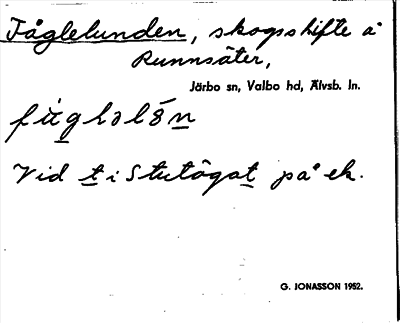 Fåglelunden, skogsskifte å
Runnsäter,
Järbo sn, Valbo hd, Älvsb. ln.
Vid t i Stutögat på ek.
G. JONASSON 1952.